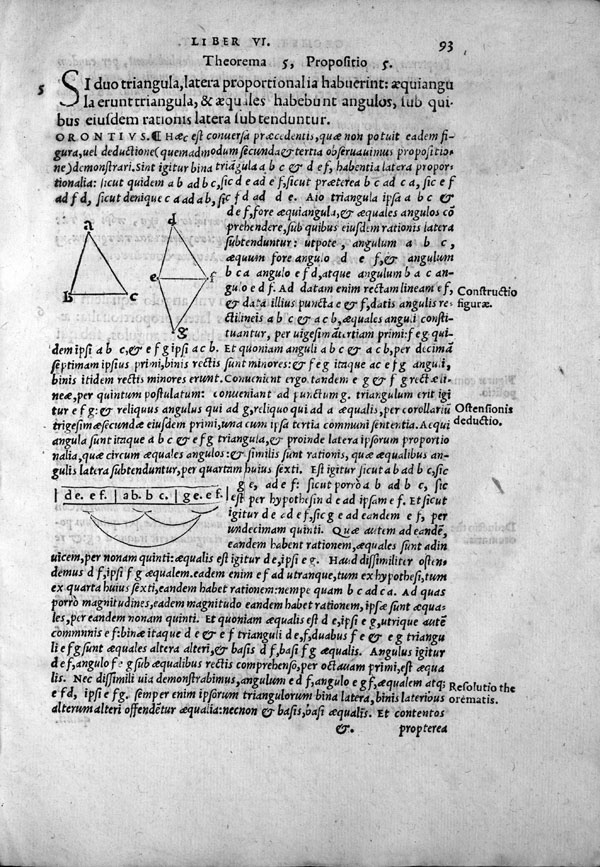 LIBER VI. 93
Theorema 5, Propositio 5.
5 SI duo triangula, latera proportionalia habuerint: æquiangu
la erunt triangula, & æquales habebunt angulos, sub qui
bus eiusdem rationis latera subtenduntur.
ORONTIVS. ¶ Hæc est conuersa præcedentis, quæ non potuit eadem fi-
gura, uel deductione (quemadmodum secunda & tertia obseruauimus propositio-
ne) demonstrari. Sint igitur bina triāgula a b c & d e f, habentia latera propor-
tionalia: sicut quidem a b ad b c, sic d e ad e f, sicut præterea b c ad c a, sic e f
ad f d, sicut denique c a ad a b, sic f d ad d e. Aio triangula ipsa a b c &
d e f, fore æquiangula, & æquales angulos cō
prehendere, sub quibus eiusdem rationis latera
subtenduntur: utpote, angulum a b c,
æquum fore angulo d e f, & angulum
b c a angulo e f d, atque angulum b a c an-
gulo e d f. Ad datam enim rectam lineam e f,
& data illius puncta e & f, datis angulis re-
ctilineis a b c & a c b, æquales anguli consti-
tuantur, per uigesimātertiam primi: f e g qui-
dem ipsi a b c, & e f g ipsi a c b. Et quoniam anguli a b c & a c b, per decimā
septimam ipsius primi, binis rectis sunt minores: & f e g itaque ac e f g anguli,
binis itidem rectis minores erunt. Conuenient ergo tandem e g & f g rectæ li-
neæ, per quintum postulatum: conueniant ad punctum g. triangulum erit igi
tur e f g: & reliquus angulus qui ad g, reliquo qui ad a æqualis, per corollariū
trigesimæsecundæ eiusdem primi, una cum ipsa tertia communi sententia. Aequi
angula sunt itaque a b c & e f g triangula, & proinde latera ipsorum proportio
nalia, quæ circum æquales angulos: & similis sunt rationis, quæ æqualibus an-
gulis latera subtenduntur, per quartam huius sexti. Est igitur sicut a b ad b c, sic
g e, ad e f: sicut porrò a b ad b c, sic
est per hypothesin d e ad ipsam e f. Et sicut
igitur d e ad e f, sic g e ad eandem e f, per
undecimam quinti. Quæ autem ad eandē,
eandem habent rationem, æquales sunt adin
uicem, per nonam quinti: æqualis est igitur d e, ipsi e g. Haud dissimiliter osten-
demus d f, ipsi f g æqualem. eadem enim e f ad utranque, tum ex hypothesi, tum
ex quarta huius sexti, eandem habet rationem: nempe quam b c ad c a. Ad quas
porrò magnitudines, eadem magnitudo eandem habet rationem, ipsæ sunt æqua-
les, per eandem nonam quinti. Et quoniam æqualis est d e, ipsi e g, utrique autē
communis e f: binæ itaque d e & e f trianguli d e f, duabus f e & e g triangu
li e f g sunt æquales altera alteri, & basis d f, basi f g æqualis. Angulus igitur
d e f, angulo f e g sub æqualibus rectis comprehenso, per octauam primi, est æqua
lis. Nec dissimili uia demonstrabimus, angulum e d f, angulo e g f, æqualem atq;
e f d, ipsi e f g. semper enim ipsorum triangulorum bina latera, binis lateribus
alterum alteri offendētur æqualia: necnon & basis, basi æqualis. Et contentos
&. propterea
a
b c
d
e f
g
Constructio
figuræ.
Ostensionis
deductio.
| de. e f. | ab. b c. | g e. e f. |
Resolutio the
orematis.